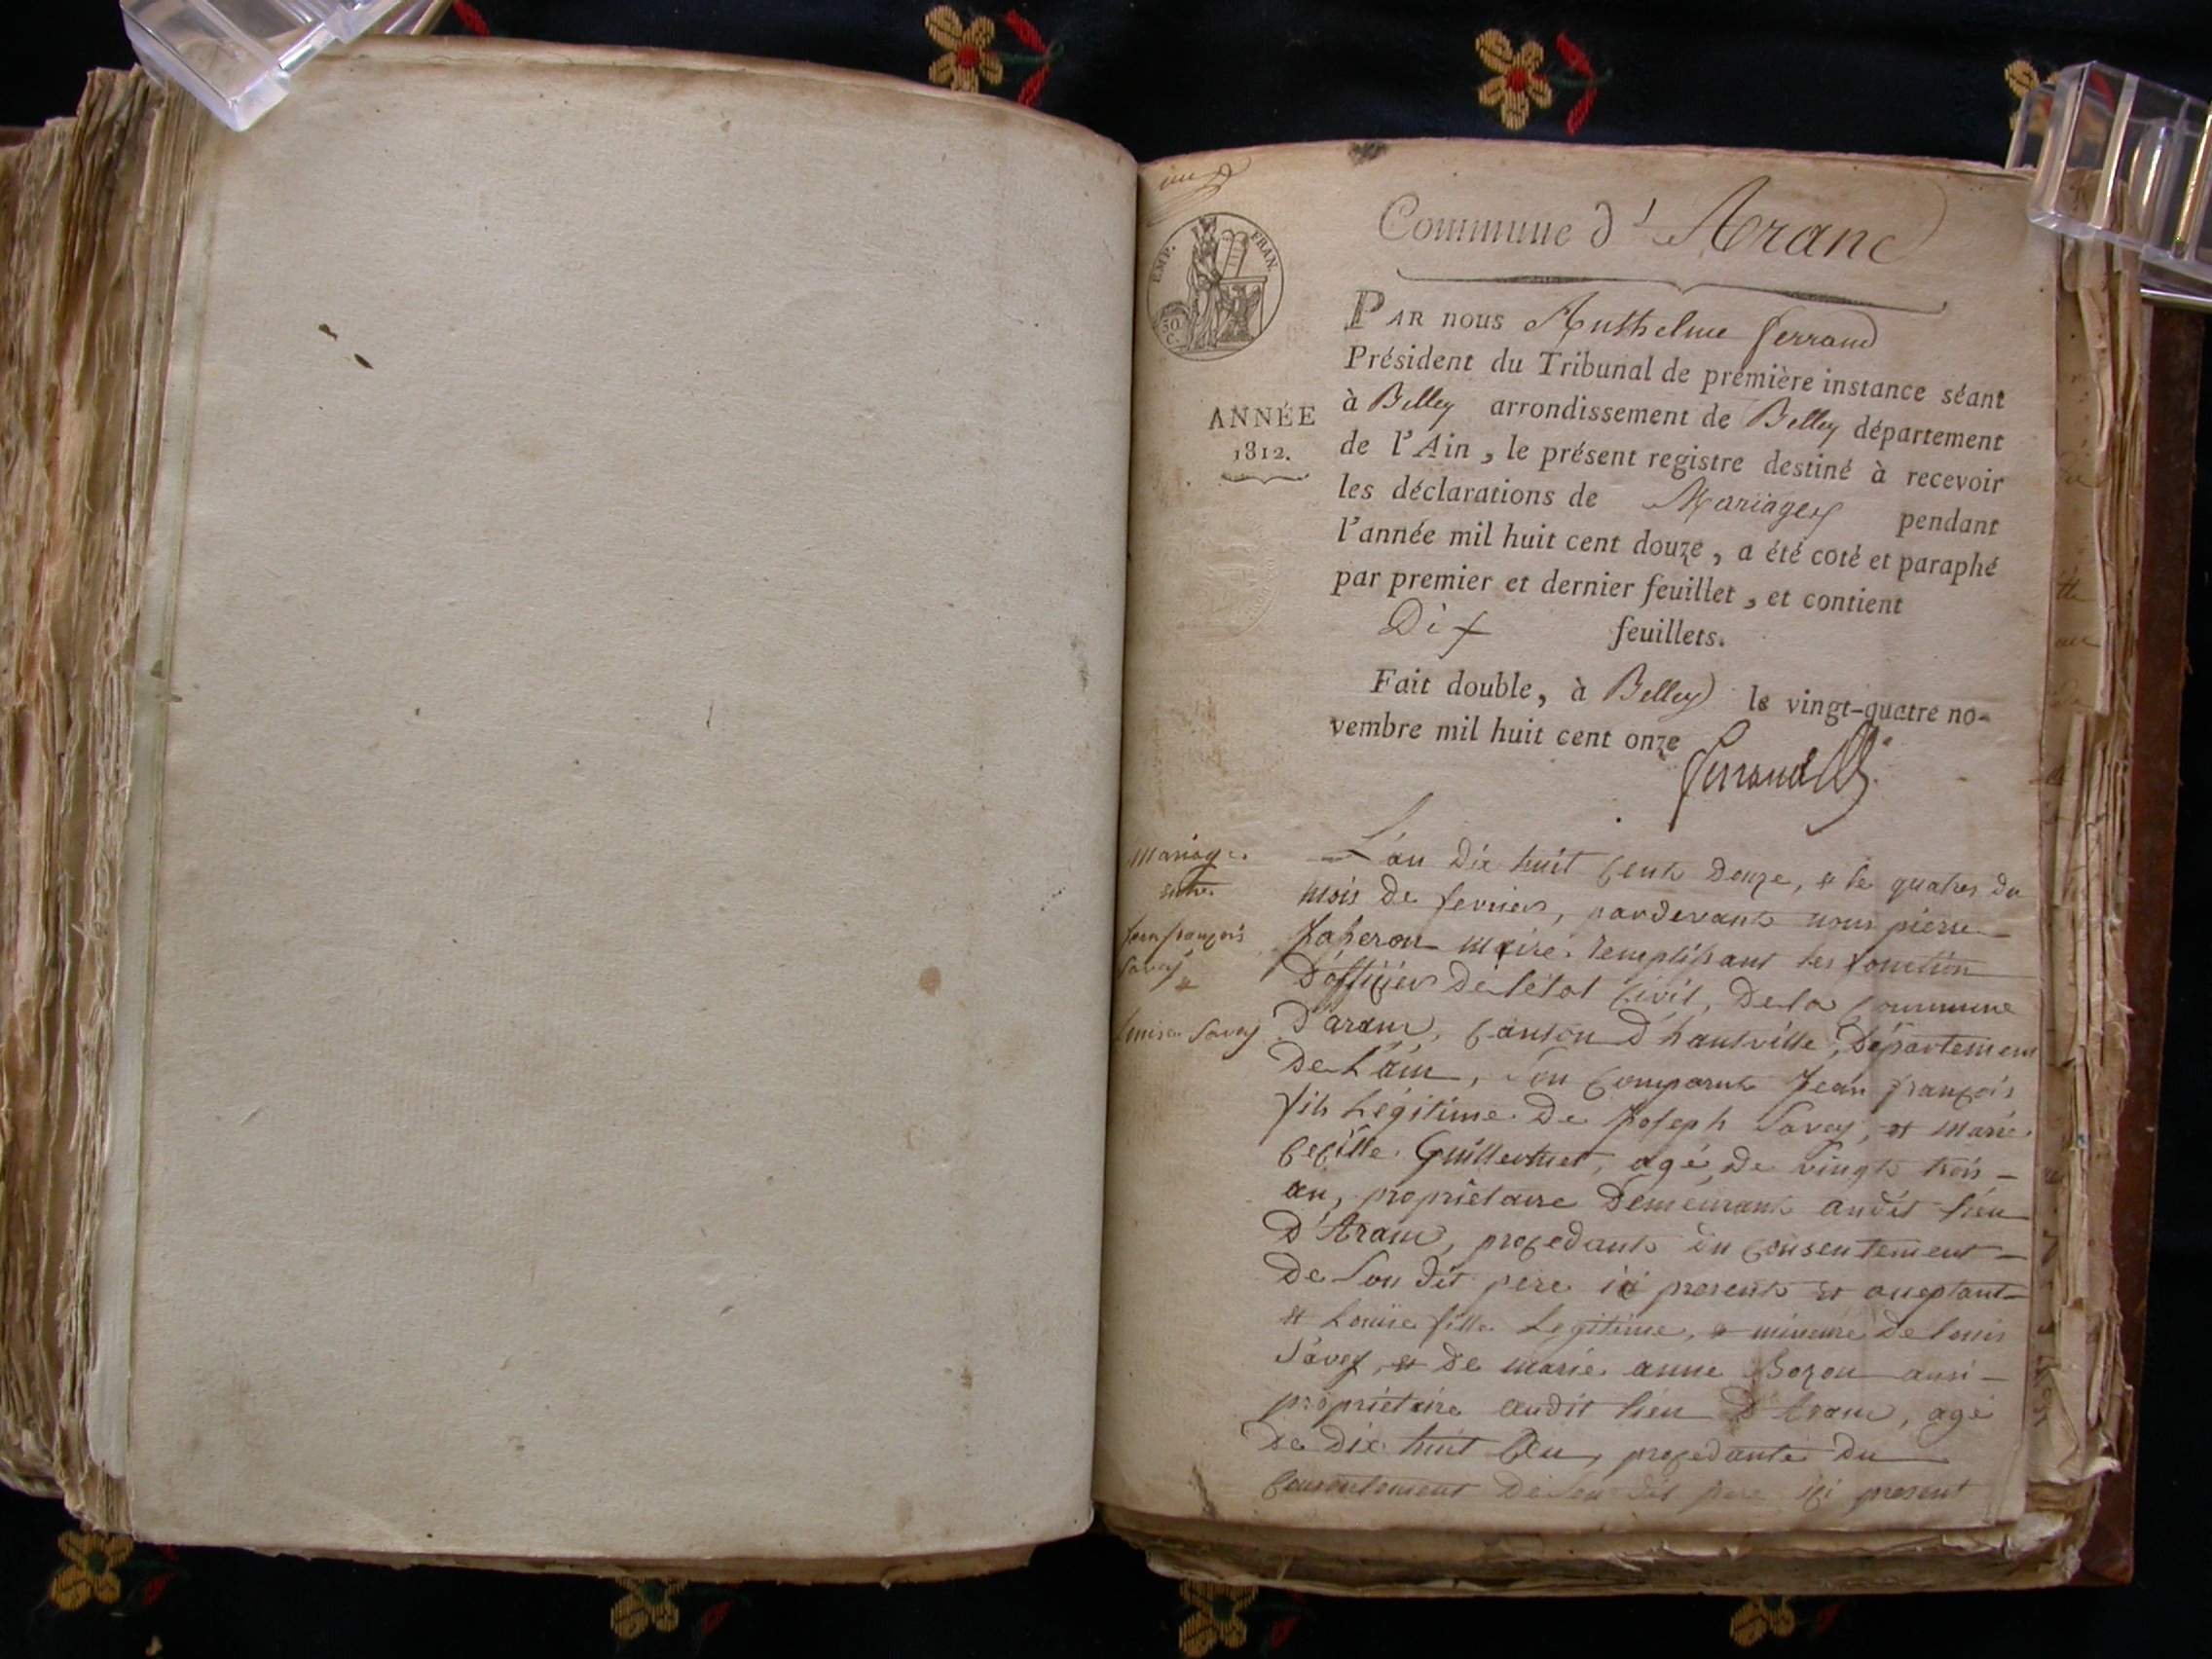 Commune d'Aranc
EMP. FRAN.
30 C.
ANNÉE
1812.
PAR nous Anthelme ferrand
Président du Tribunal de première instance séant
à Belley arrondissement de Belley département
de l'Ain, le présent registre destiné à recevoir
les déclarations de Mariages pendant
l'année mil huit cent douze, a été coté et paraphé
par premier et dernier feuillet, et contient
Dix feuillets.
Fait double, à Belley le vingt-quatre no-
vembre mil huit cent onze
ferrand
Mariage
entre
jean françois
Savey
&
Louise Savey
L'an dix huit cent douze, & le quatre du
mois de fevrier, pardevant nous pierre
maire remplissant les fonction
d'officier de l'état civil, de la commune
d'aranc, canton d'hauteville, département
de L'ain, Son comparut Jean françois
fils Légitime de Joseph Savey, et marie
Cecille Guillermet, agé de vingt trois
an, proprietaire demeurant audit lieu
D'Aranc, procedant du consentement
de Son dit pere ici present et acceptant
et Louise fille Legitime, & mineure de Louis
Savey, et de marie anne Bozon aussi
propriétaire audit lieu d'Aranc, agé
de dix huit an, procedante du
consentement de Son dit pere ici present